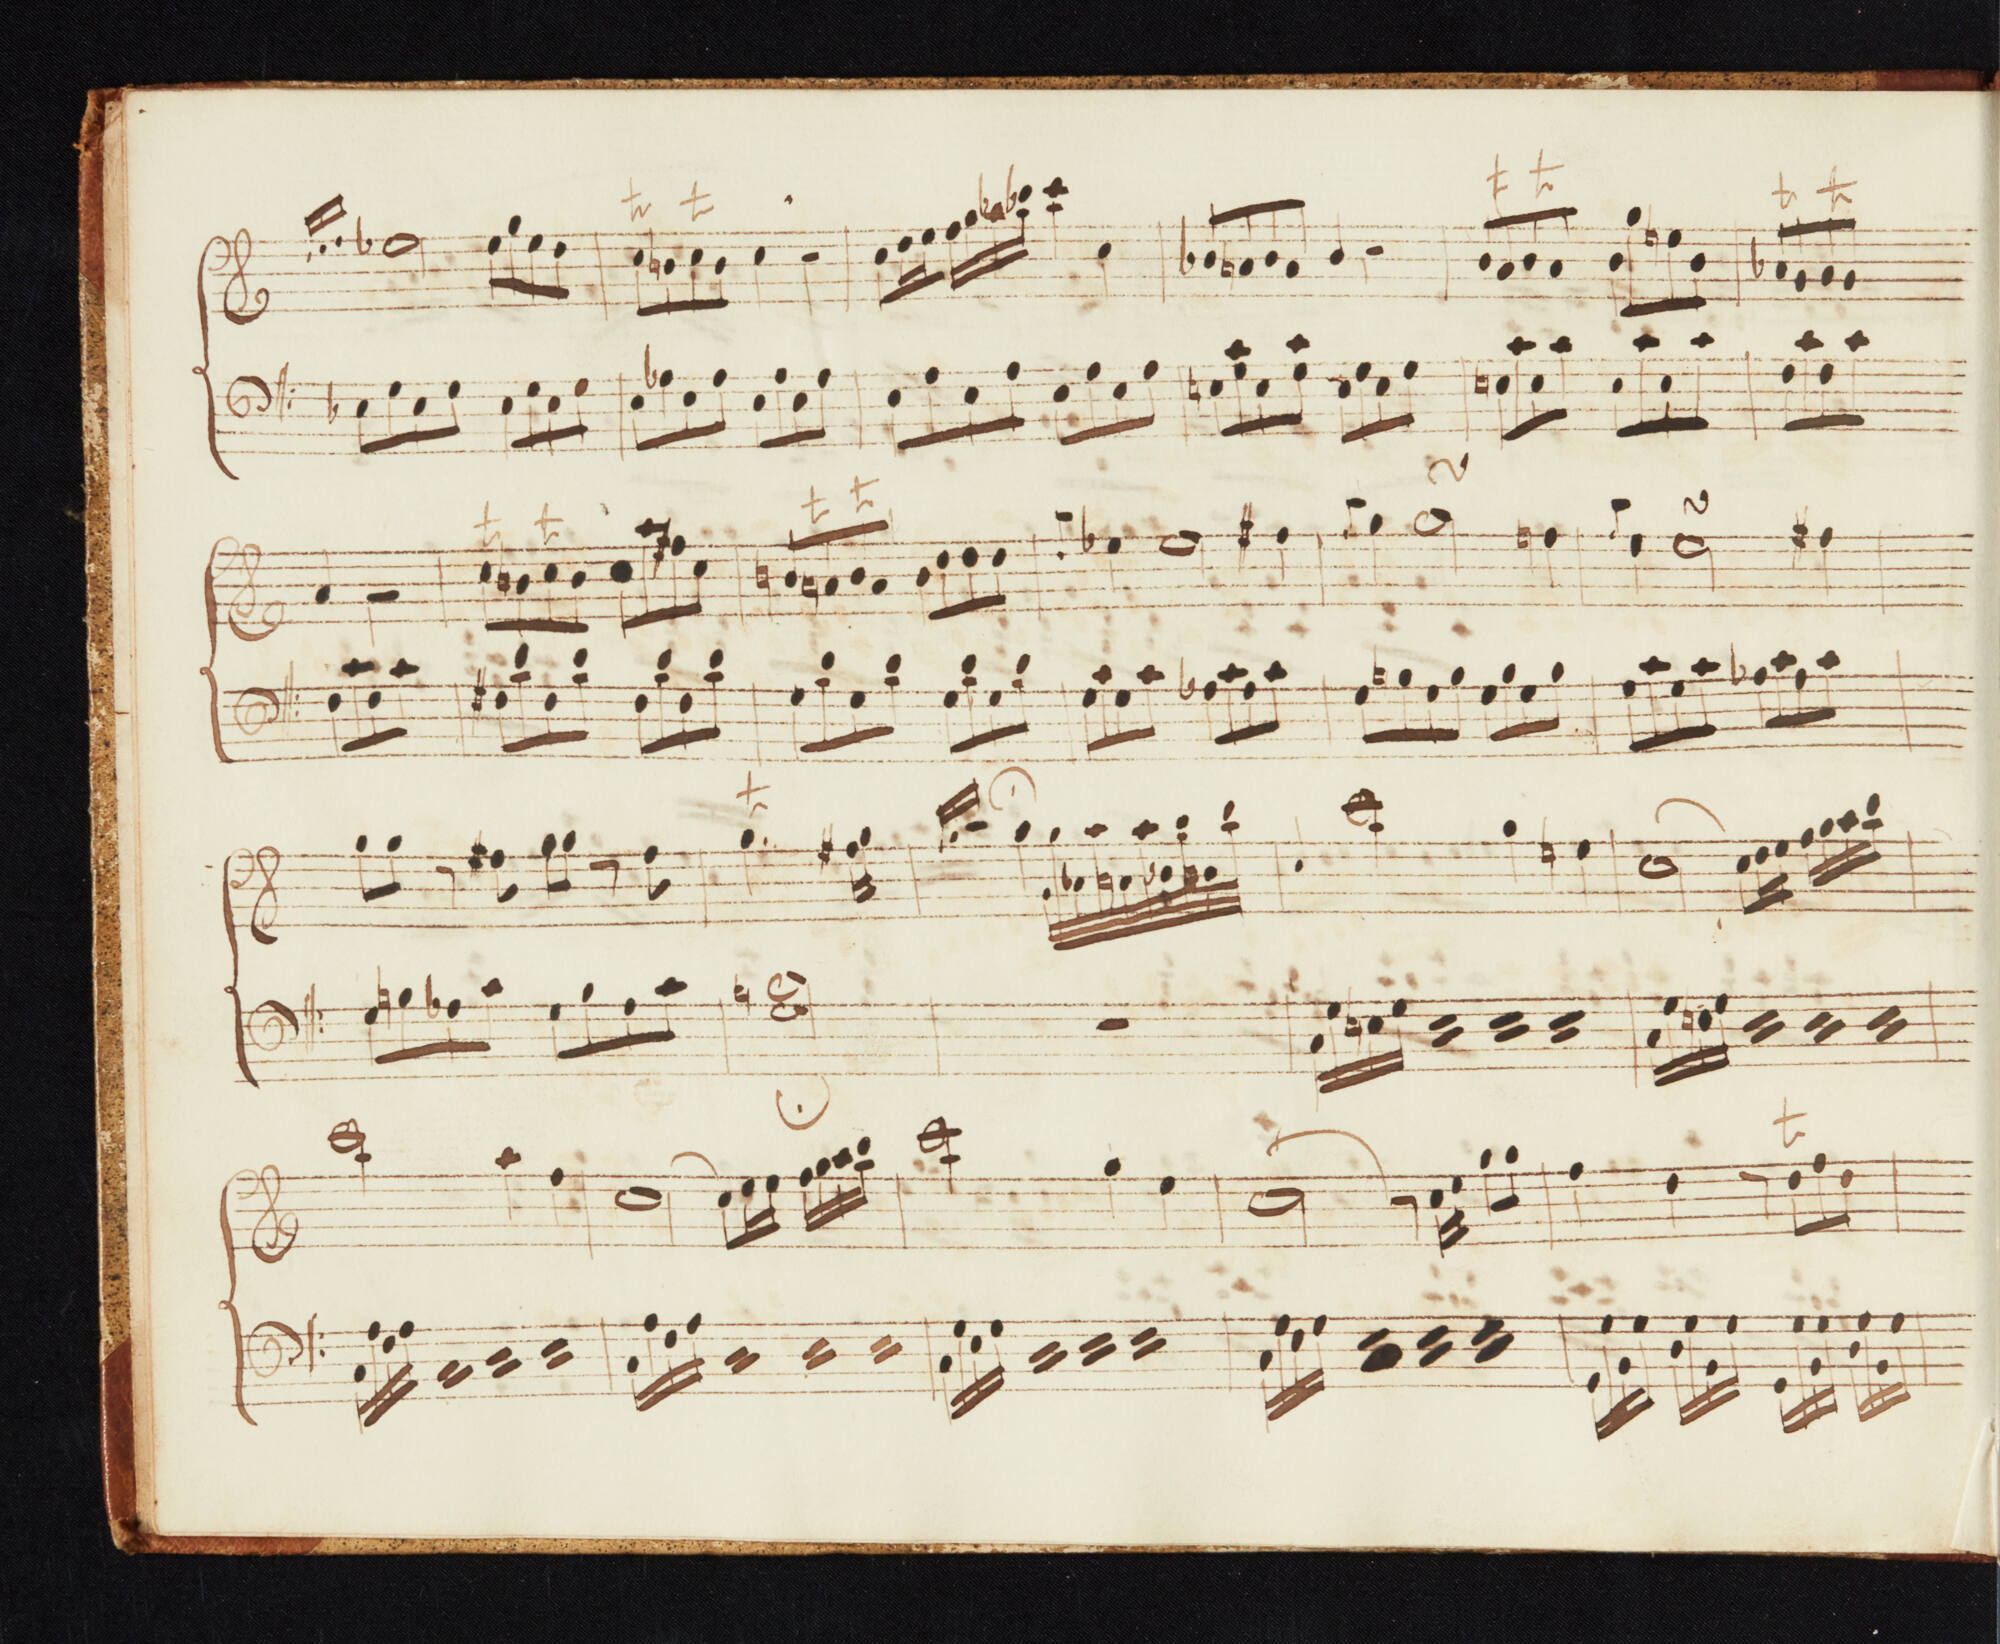 tr tr tr tr tr tr
tr tr tr tr
tr
tr